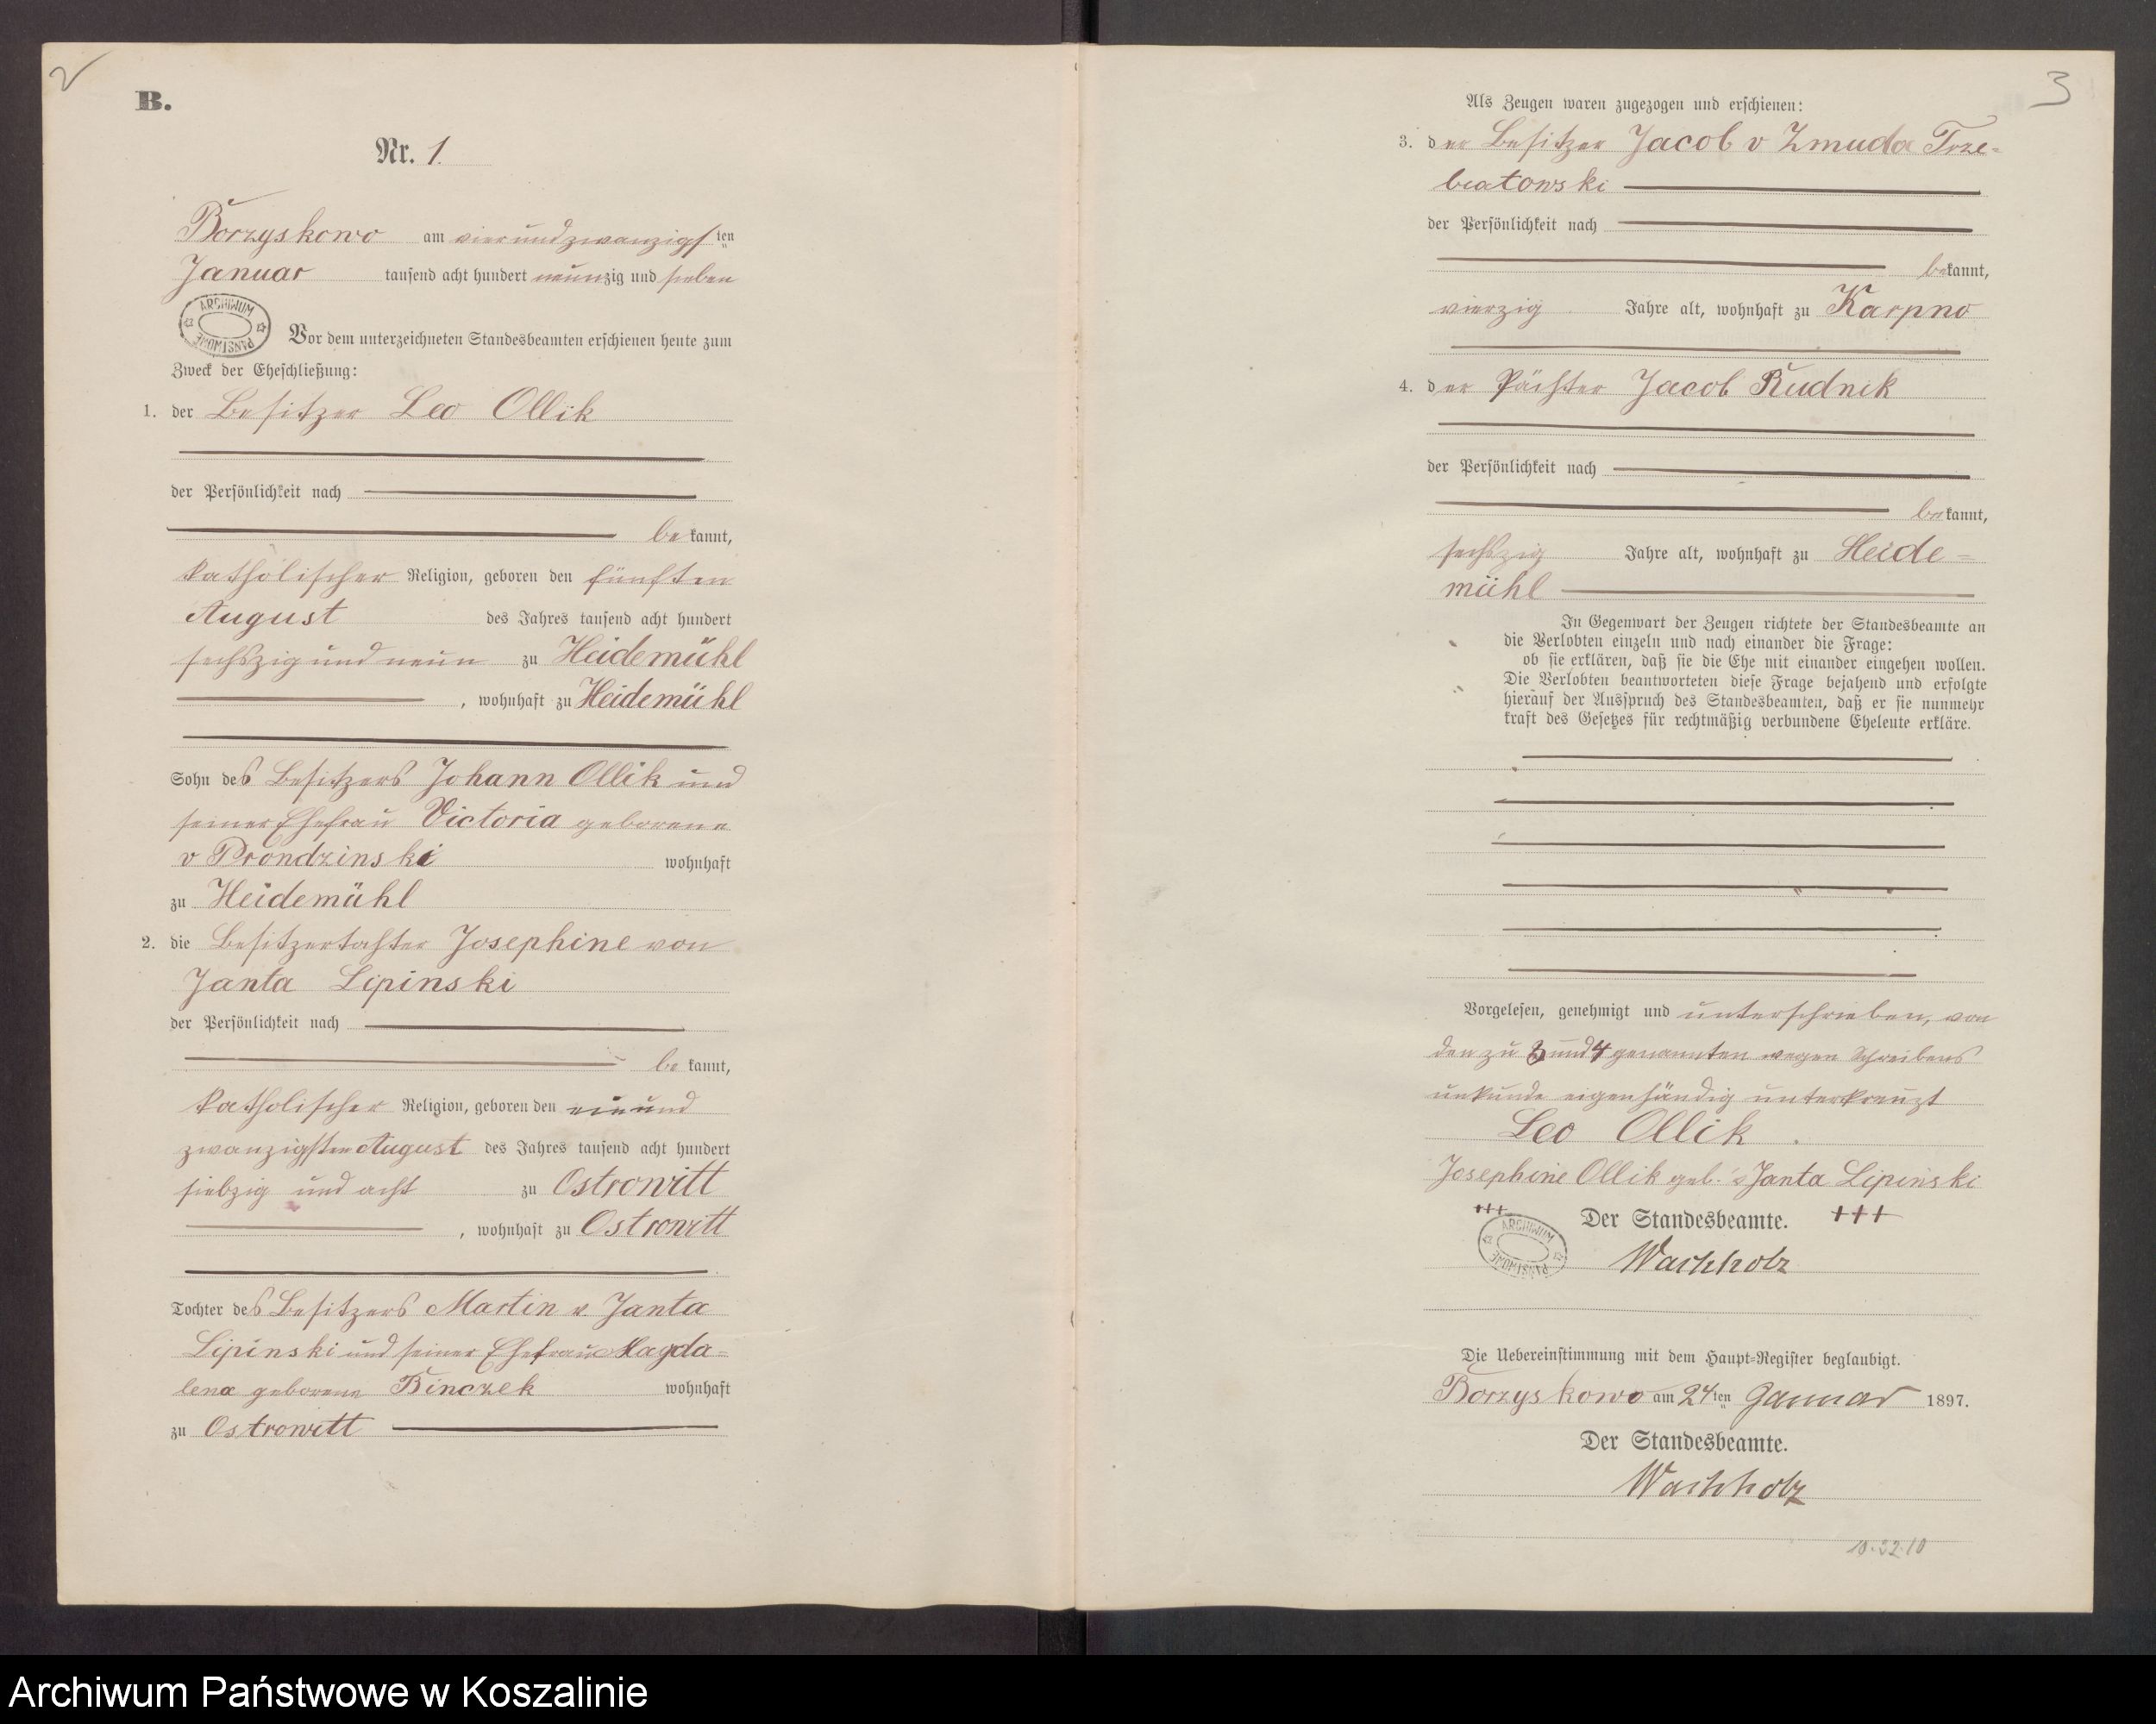 2
B.
Nr. 1.
Borzyskowo am vierundzwanzigsten
Januar tausend acht hundert neunzig und sieben
ARCHIWUM PAŃSTWOWE
Vor dem unterzeichneten Standesbeamten erschienen heute zum
Zweck der Eheschließung:
1. der Besitzer Leo Ollik
der Persönlichkeit nach
bekannt,
katholischer Religion, geboren den fünften
August des Jahres tausend acht hundert
sechszig und neun zu Heidemühl
, wohnhaft zu Heidemühl
Sohn des Besitzers Johann Ollik und
seiner Ehefrau Victoria geborene
v Prondzinski wohnhaft
zu Heidemühl
2. die Besitzertochter Josephine von
Janta Lipinski
der Persönlichkeit nach
bekannt,
katholischer Religion, geboren den einund
zwanzigsten August des Jahres tausend acht hundert
siebzig und acht zu Ostrowitt
, wohnhaft zu Ostrowitt
Tochter des Besitzers Martin v Janta
Lipinski und seiner Ehefrau Magda-
lena geborene Binczek wohnhaft
zu Ostrowitt
3
Als Zeugen waren zugezogen und erschienen:
3. der Besitzer Jacob v Zmuda Trze-
biatowski
der Persönlichkeit nach
bekannt,
vierzig Jahre alt, wohnhaft zu Karpno
4. der Pächter Jacob Rudnik
der Persönlichkeit nach
bekannt,
sechszig Jahre alt, wohnhaft zu Heide-
mühl
In Gegenwart der Zeugen richtete der Standesbeamte an
die Verlobten einzeln und nach einander die Frage:
ob sie erklären, daß sie die Ehe mit einander eingehen wollen.
Die Verlobten beantworteten diese Frage bejahend und erfolgte
hierauf der Ausspruch des Standesbeamten, daß er sie nunmehr
kraft des Gesetzes für rechtmäßig verbundene Eheleute erkläre.
Vorgelesen, genehmigt und unterschrieben, von
den zu 3 und 4 genannten wegen Schreibens
unkunde eigenhändig unterkreuzt
Leo Ollik.
Josephine Ollik geb. v Janta Lipinski
+++ Der Standesbeamte. +++
ARCHIWUM PAŃSTWOWE
Wachholz
Die Uebereinstimmung mit dem Haupt-Register beglaubigt.
Borzyskowo am 24ten Januar 1897.
Der Standesbeamte.
Wachholz
Archiwum Państwowe w Koszalinie